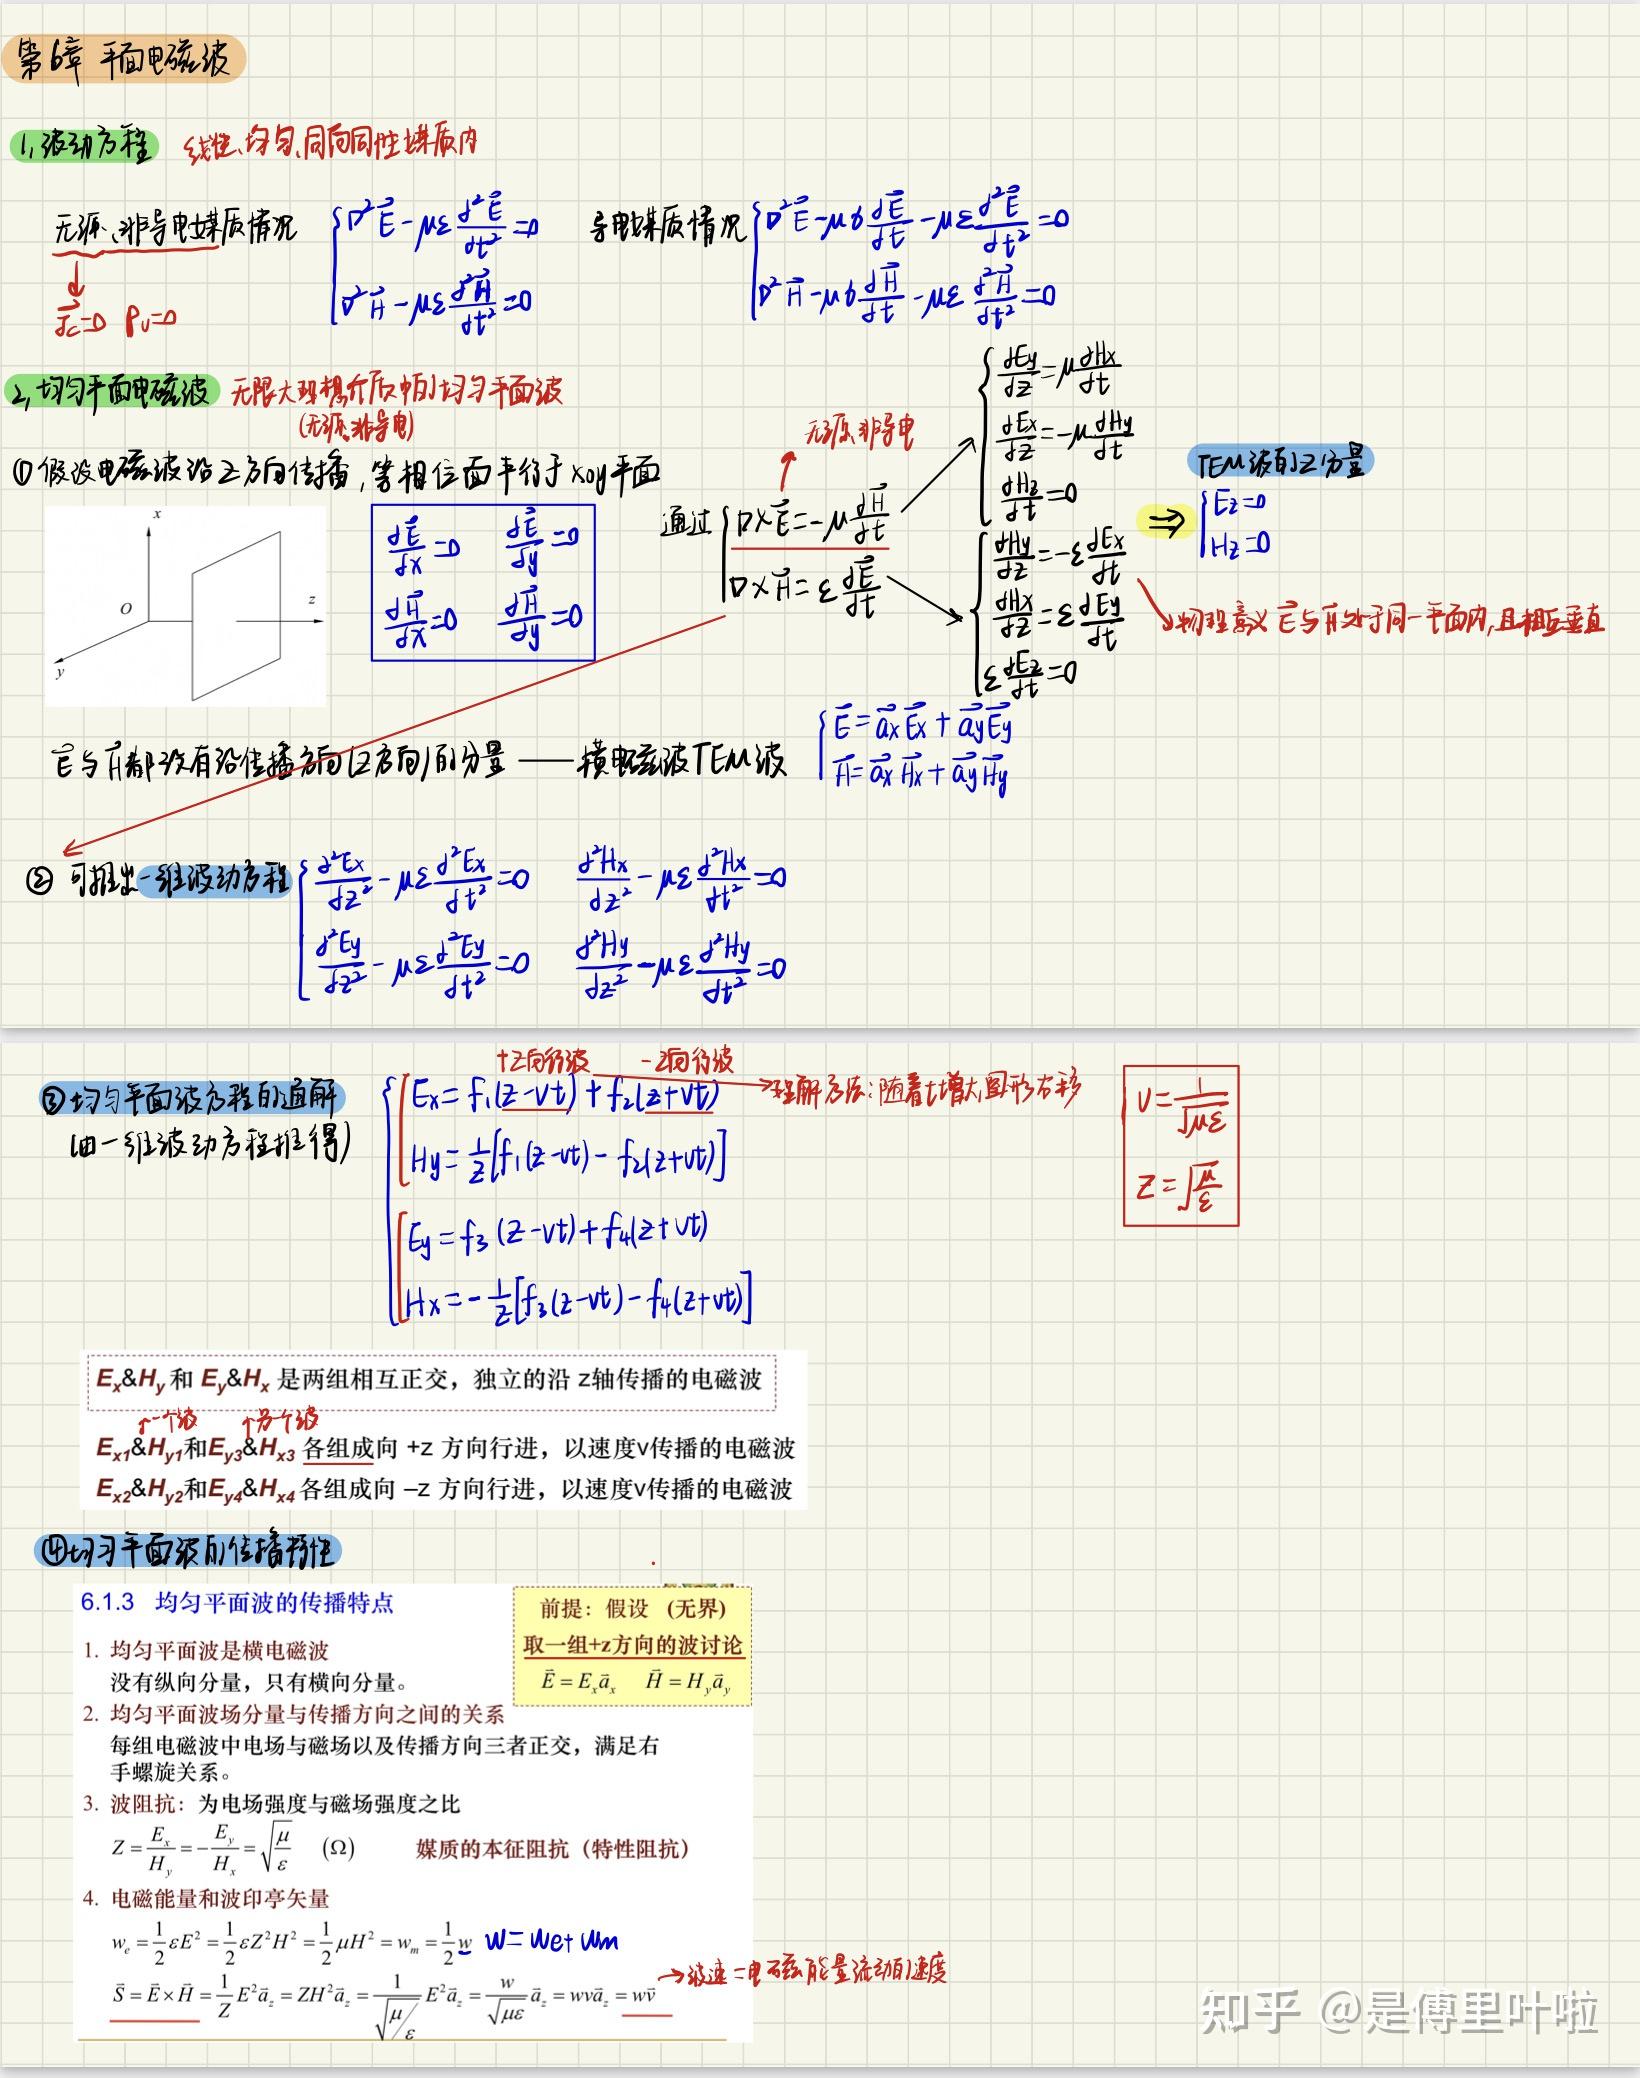 第6章 平面电磁波
1,波动方程 线性、均匀、同向同性媒质内
无源、非导电媒质情况 { ∇²E⃗ - με ∂²E⃗/∂t² = 0 导电媒质情况 { ∇²E⃗ - μσ ∂E⃗/∂t - με ∂²E⃗/∂t² = 0
∇²H⃗ - με ∂²H⃗/∂t² = 0 ∇²H⃗ - μσ ∂H⃗/∂t - με ∂²H⃗/∂t² = 0
↓
J⃗c=0 ρv=0
2,均匀平面电磁波 无限大理想介质中的均匀平面波
(无源、非导电)
①假设电磁波沿Z方向传播,等相位面平行于xoy平面
x
O
z
y
∂E⃗/∂x=0 ∂E⃗/∂y=0
∂H⃗/∂x=0 ∂H⃗/∂y=0
无源、非导电
通过 { ∇×E⃗ = -μ ∂H⃗/∂t
∇×H⃗ = ε ∂E⃗/∂t
∂Ey/∂z = μ ∂Hx/∂t
∂Ex/∂z = -μ ∂Hy/∂t
∂Hz/∂t = 0
∂Hy/∂z = -ε ∂Ex/∂t
∂Hx/∂z = ε ∂Ey/∂t
ε ∂Ez/∂t = 0
⇒
TEM波的Z分量
{ Ez=0
Hz=0
物理意义 E⃗与H⃗处于同一平面内,且相互垂直
E⃗与H⃗都没有沿传播方向(Z方向)的分量 —— 横电磁波TEM波 { E⃗ = a⃗x E⃗x + a⃗y E⃗y
H⃗ = a⃗x H⃗x + a⃗y H⃗y
② 可推出一维波动方程 { ∂²Ex/∂z² - με ∂²Ex/∂t² = 0 ∂²Hx/∂z² - με ∂²Hx/∂t² = 0
∂²Ey/∂z² - με ∂²Ey/∂t² = 0 ∂²Hy/∂z² - με ∂²Hy/∂t² = 0
+Z向行波 -Z向行波
③均匀平面波方程的通解 { Ex = f₁(z-vt) + f₂(z+vt) →理解方法:随着t增大,图形右移
(由一维波动方程推得)
Hy = 1/Z [f₁(z-vt) - f₂(z+vt)]
Ey = f₃(z-vt) + f₄(z+vt)
Hx = -1/Z [f₃(z-vt) - f₄(z+vt)]
v = 1/√(με)
Z = √(μ/ε)
Ex&Hy 和 Ey&Hx 是两组相互正交，独立的沿 z轴传播的电磁波
↑一个波 ↑另一个波
Ex1&Hy1和Ey3&Hx3 各组成向 +z 方向行进，以速度v传播的电磁波
Ex2&Hy2和Ey4&Hx4 各组成向 –z 方向行进，以速度v传播的电磁波
④均匀平面波的传播特性
6.1.3 均匀平面波的传播特点
前提：假设 (无界)
取一组+z方向的波讨论
E⃗ = Ex a⃗x H⃗ = Hy a⃗y
1. 均匀平面波是横电磁波
没有纵向分量，只有横向分量。
2. 均匀平面波场分量与传播方向之间的关系
每组电磁波中电场与磁场以及传播方向三者正交，满足右
手螺旋关系。
3. 波阻抗：为电场强度与磁场强度之比
Z = Ex/Hy = -Ey/Hx = √(μ/ε) (Ω) 媒质的本征阻抗（特性阻抗）
4. 电磁能量和波印亭矢量
we = 1/2 εE² = 1/2 εZ²H² = 1/2 μH² = wm = 1/2 w w=we+wm
S⃗ = E⃗×H⃗ = 1/Z E² a⃗z = ZH² a⃗z = 1/√(μ/ε) E² a⃗z = w/√(με) a⃗z = wv a⃗z = wv⃗ →波速=电磁能量流动的速度
知乎 @是傅里叶啦